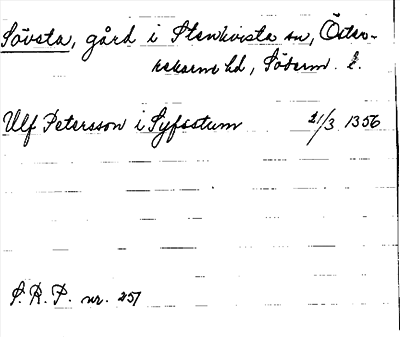 Sövsta, gård i Stenkvista sn, Öster-
rekarne hd, Söderm. l.
Ulf Petersson i Syfsstum 21/3 1356
S. R. P. nr. 257